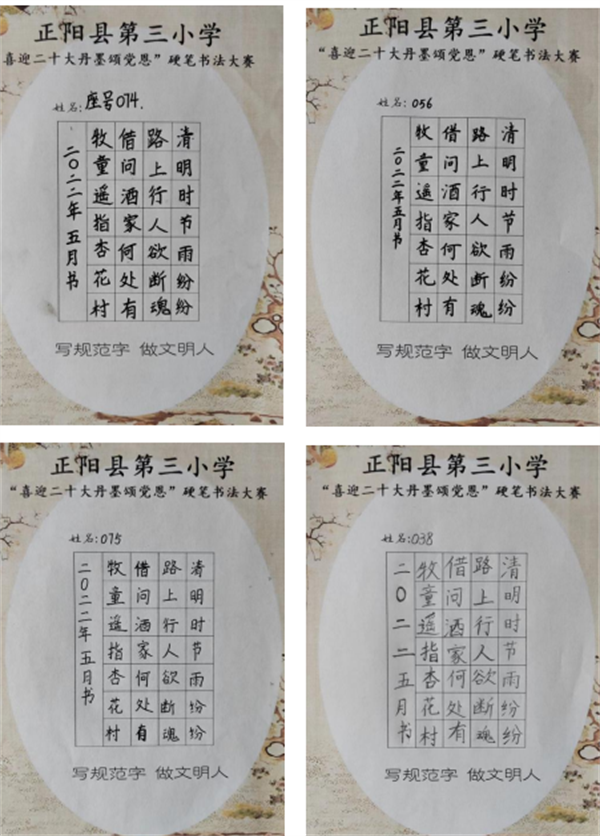 正阳县第三小学
喜迎二十大丹墨颂党恩”硬笔书法大赛
姓名:座号074.
清明时节雨纷纷
路上行人欲断魂
借问酒家何处有
牧童遥指杏花村
二〇二二年五月书
写规范字 做文明人
正阳县第三小学
“喜迎二十大丹墨颂党恩”硬笔书法大赛
姓名:056
清明时节雨纷纷
路上行人欲断魂
借问酒家何处有
牧童遥指杏花村
二〇二二年五月书
写规范字 做文明人
正阳县第三小学
“喜迎二十大丹墨颂党恩”硬笔书法大赛
姓名:075
清明时节雨纷纷
路上行人欲断魂
借问酒家何处有
牧童遥指杏花村
二〇二二年五月书
写规范字 做文明人
正阳县第三小学
“喜迎二十大丹墨颂党恩”硬笔书法大赛
姓名:038
清明时节雨纷纷
路上行人欲断魂
借问酒家何处有
牧童遥指杏花村
二〇二二五月书
写规范字 做文明人